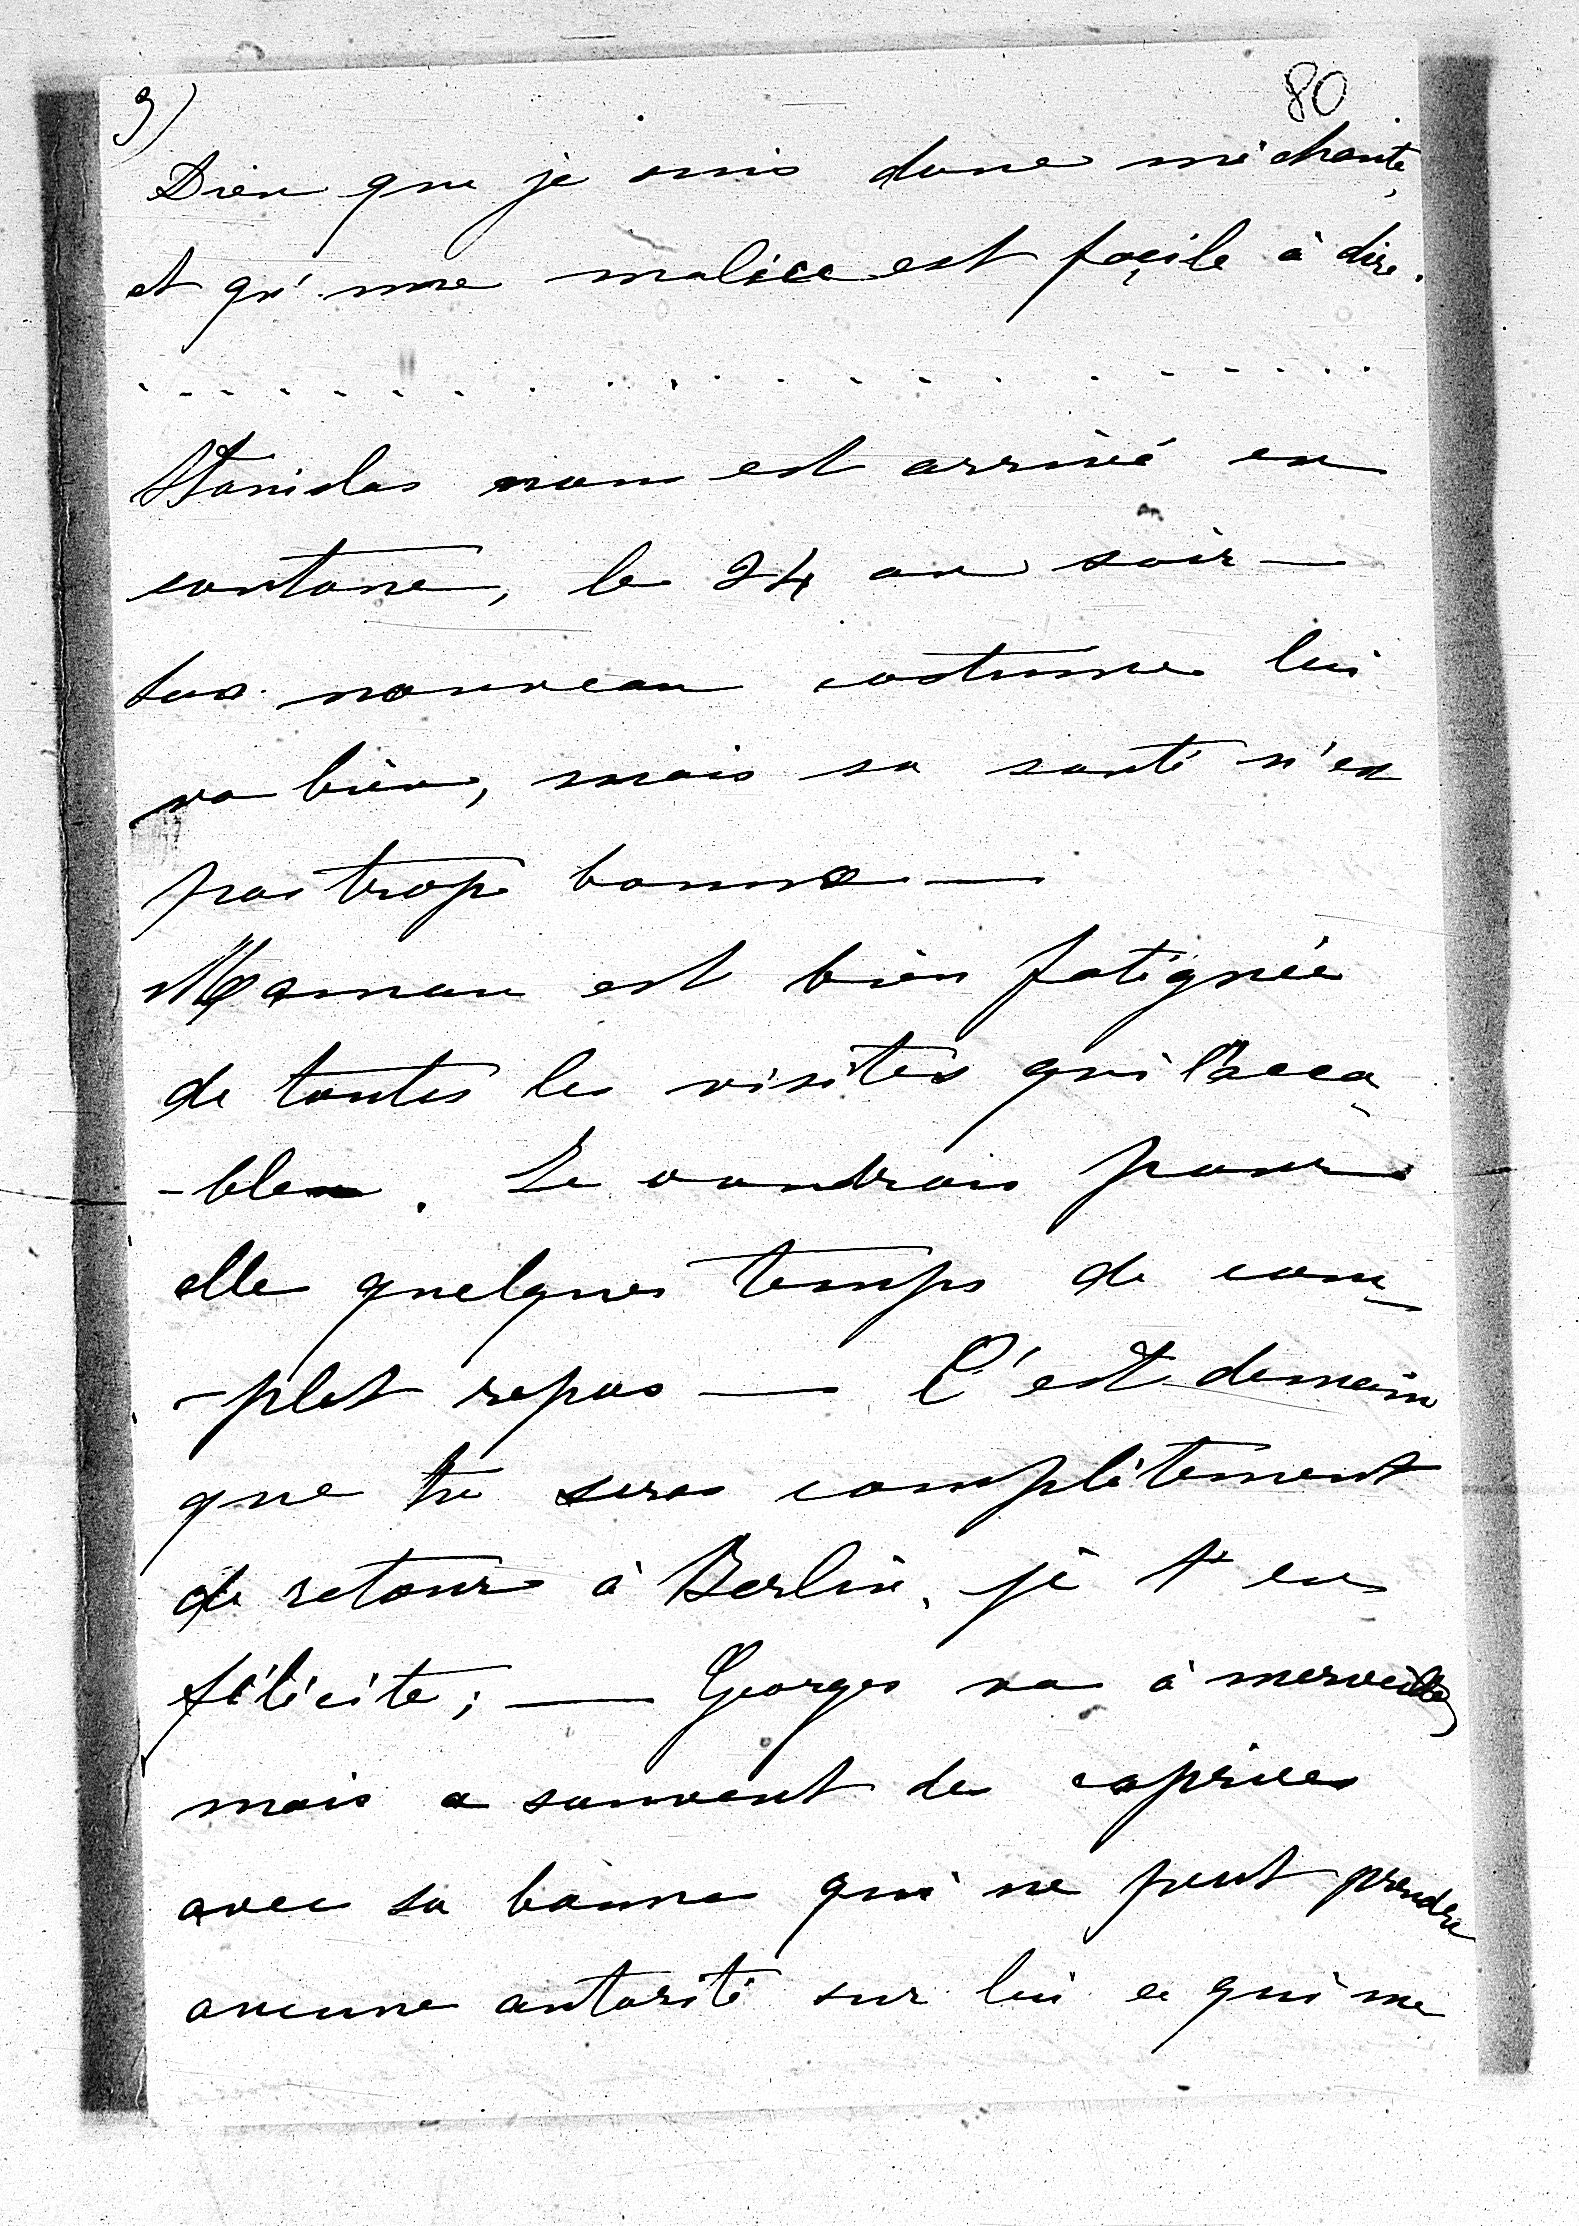 3)
80
Dieu que je suis donc méchante,
et qu'une malice est facile à dire.
. . . . . . . . . . . . . . . . . . . .
Stanislas nous est arrivé en
soutane, le 24 au soir —
Son nouveau costume lui
va bien, mais sa santé n'est
pas trop bonne —
Maman est bien fatiguée
de toutes les visites qui l'acca-
-blent. Je voudrais pour
elle quelques temps de com-
-plet repos — C'est demain
que tu seras complètement
de retour à Berlin, je t'en
félicite; — Georges va à merveille,
mais a souvent des caprices
avec sa bonne qui ne peut prendre
aucune autorité sur lui ce qui me